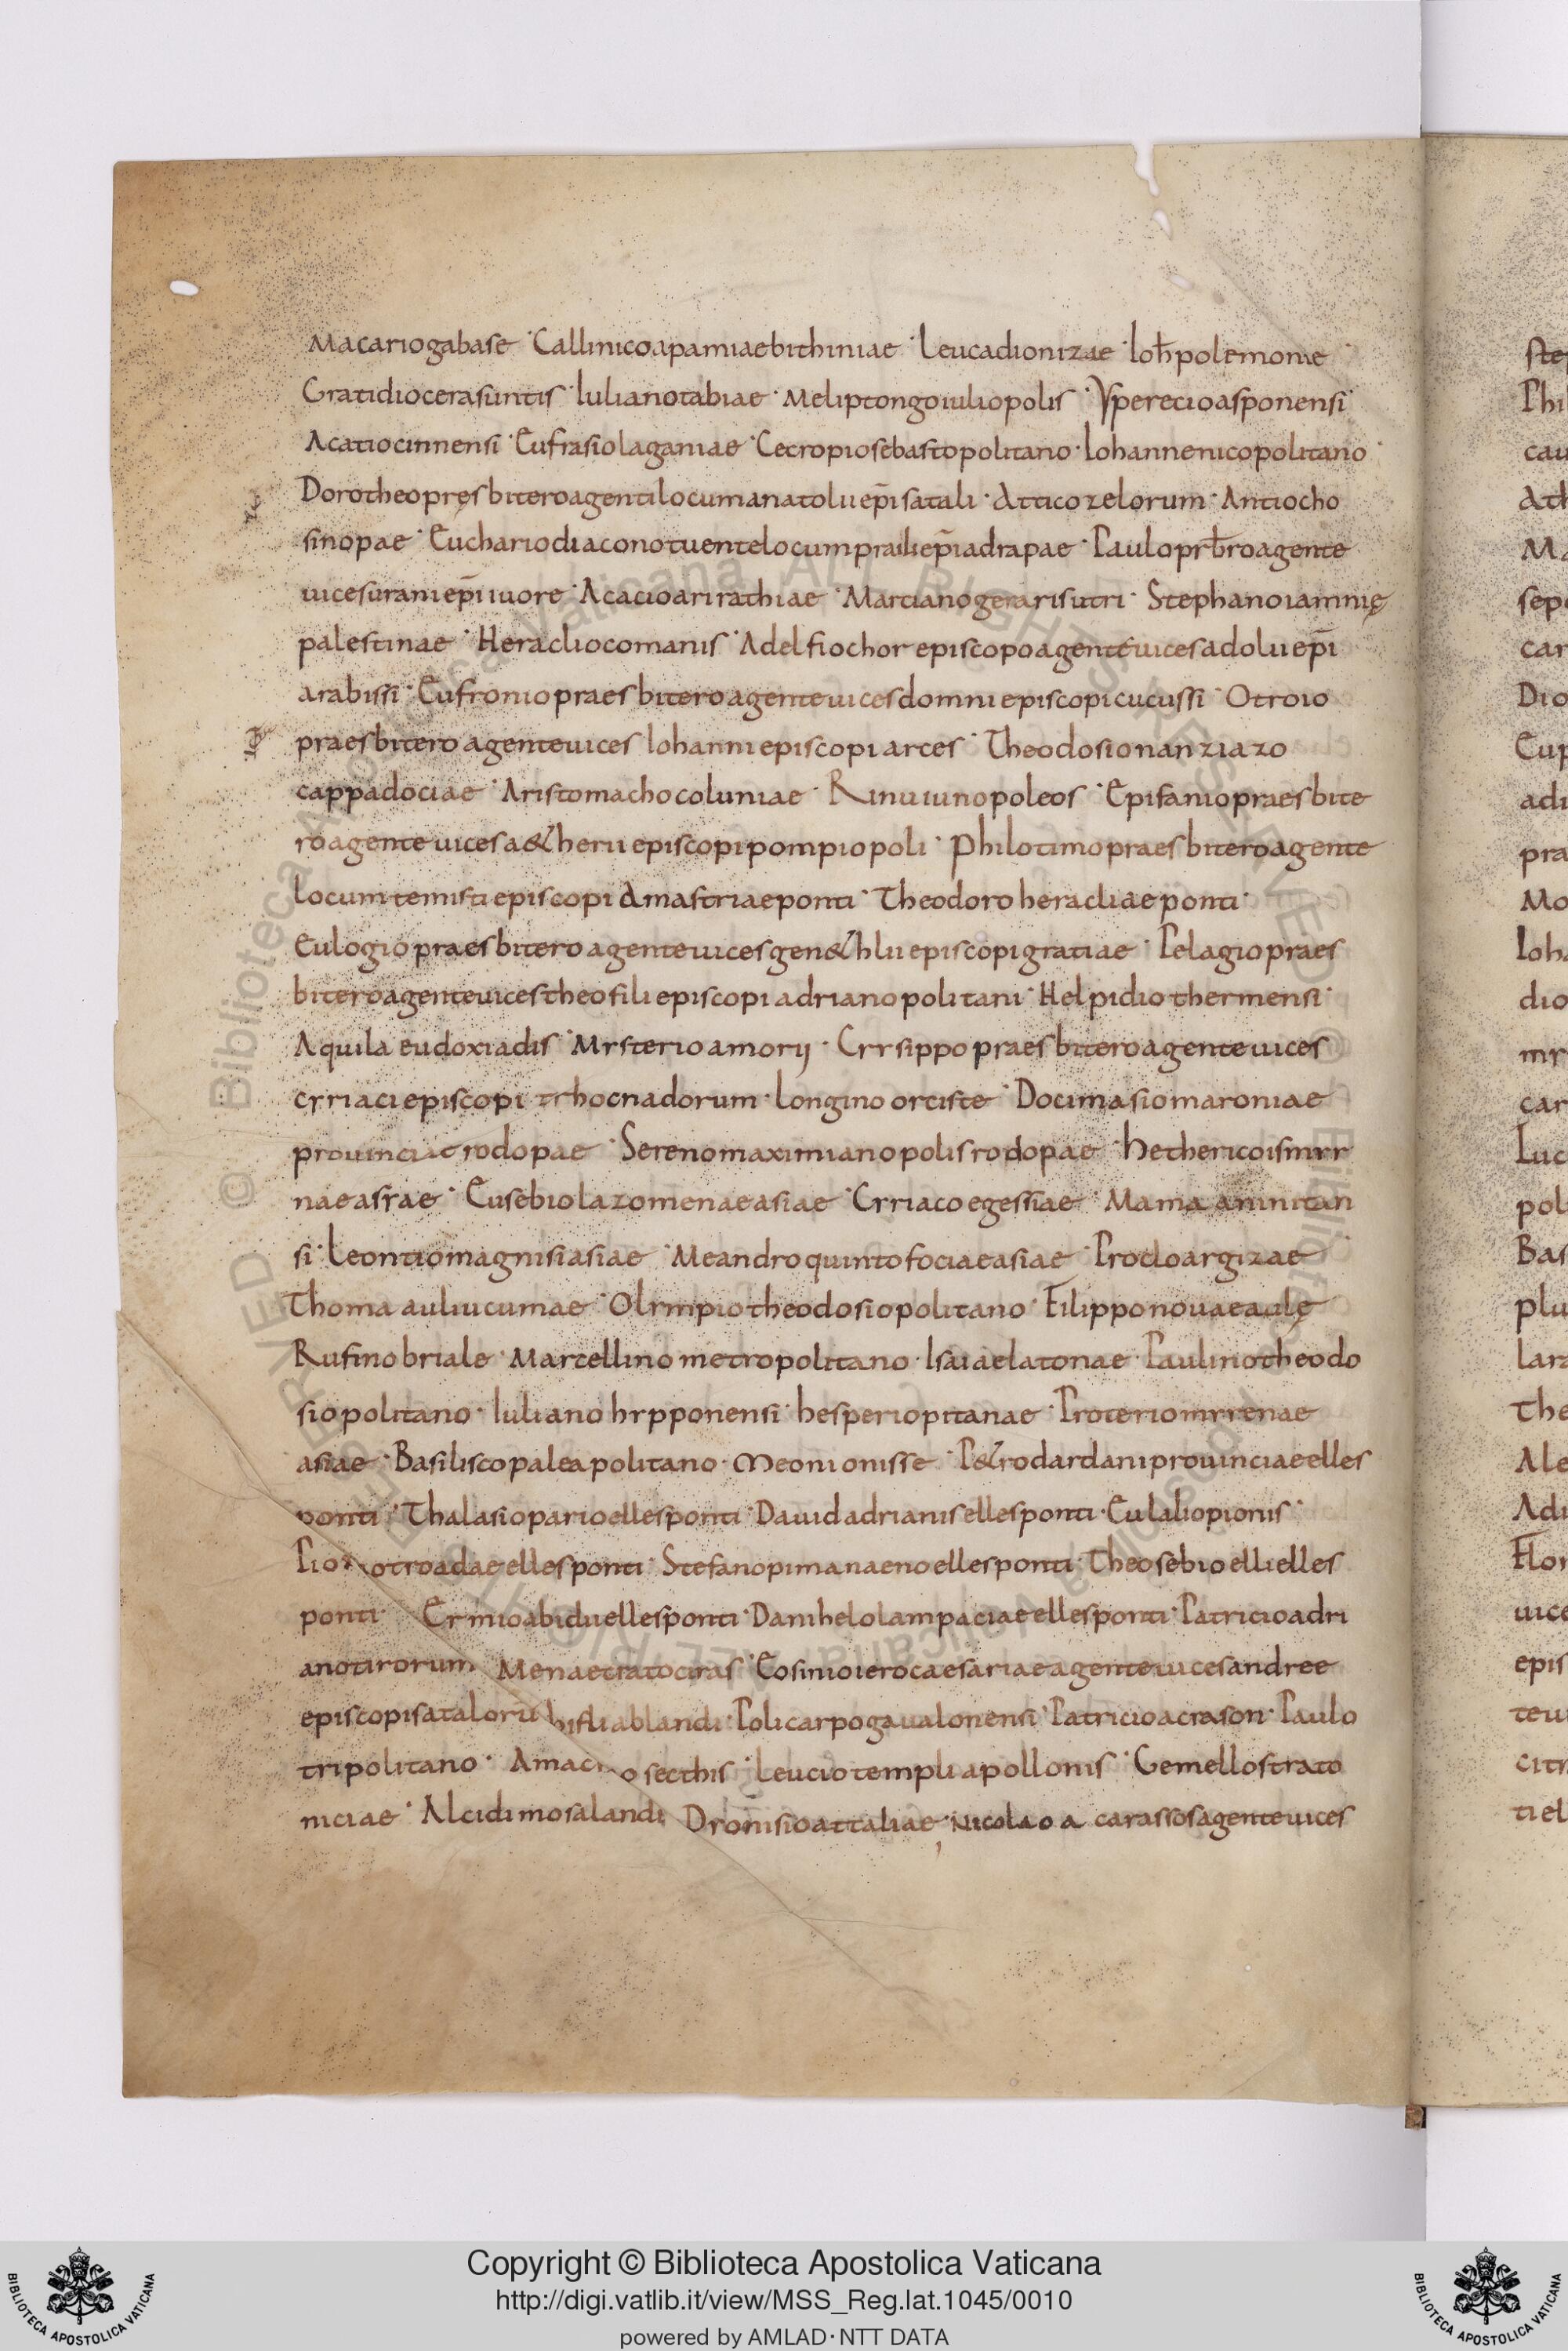 Macariogabase · Callinicoapamiaebithiniae · Leucadionizae · Ioh̅polemonie ·
Gratidiocerasuntis · Iulianotabiae · Meliptongoiuliopolis · Ysperecioasponensi ·
Acatiocinnensi · Eufrasiolaganiae · Cecropiosebastopolitano · Iohannenicopolitano ·
Dorotheopręsbiteroagentilocumanatoluep̅isatali · Atticozelorum · Antiocho
sinopae · Euchariodiaconotuentelocumprailiep̅iadrapae · Pauloprb̅roagente
uicesuraniep̅iiuore · Acacioarirathiae · Martianogerarisutri · Stephanoiamnię
palestinae · Heracliocomanis · Adelfiochorepiscopoagenteuicesadoluep̅i
arabissi · Eufroniopraesbiteroagenteuicesdomniepiscopicucussi · Otroio
praesbiteroagenteuices Iohanniepiscopiarces · Theodosionanziazo
cappadociae · Aristomachocoluniae · Rinuiunopoleos · Epifaniopraesbite
roagenteuicesa&heriiepiscopipompiopoli · Philotimopraesbiteroagente
locumtemistiepiscopi Amastriaeponti · Theodoroheracliaeponti ·
Eulogiopraesbiteroagenteuicesgen&hliiepiscopigratiae · Pelagiopraes
biteroagenteuicestheofiliepiscopiadrianopolitani · Helpidiothermensi ·
Aquila eudoxiadis · Mysterioamorij · Crysippopraesbiteroagenteuices
cyriaciepiscopi trhocnadorum · Longinoorciste · Docimasiomaroniae
prouinciae rodopae · Serenomaximianopolisrodopae · hethericoismyr
naeasyae · Eusebiolazomenaeasiae · Cyriacoegessiae · Mama aninitan
si · Leontiomagnisiasiae · Meandroquintofociaeasiae · Procloargizae
Thoma auliucumae · Olympiotheodosiopolitano · Filipponouaeaulę
Rufinobriale · Marcellinometropolitano · Isaiaelatonae · Paulinotheodo
siopolitano · Iulianohypponensi · hesperiopitanae · Proteriomyrenae
asiae · Basiliscopaleapolitano · Meonionisse · P&rodardaniprouinciaeelles
ponti · Thalasioparioellesponti · Dauidadrianisellesponti · Eulaliopionis ·
Pio otroadaeellesponti · Stefanopimanaenoellesponti · Theosebioellielles
ponti · Ermioabiduellesponti · Danihelolampaciaeellesponti · Patricioadri
anotirorum Menaecratociras · Cosinioierocaesariaeagenteuicesandree
episcopisatalorū hifliablandi · Policarpogaualonensi · Patricioacrason · Paulo
tripolitano · Amac o secthis · Leuciotempliapollonis · Gemellostrato
niciae · Alcidimosalandi Dyonisioattaliae · Nicolao a carassosagenteuices
Copyright © Biblioteca Apostolica Vaticana
http://digi.vatlib.it/view/MSS_Reg.lat.1045/0010
powered by AMLAD·NTT DATA
BIBLIOTECA APOSTOLICA VATICANA
BIBLIOTECA APOSTOLICA VATICANA